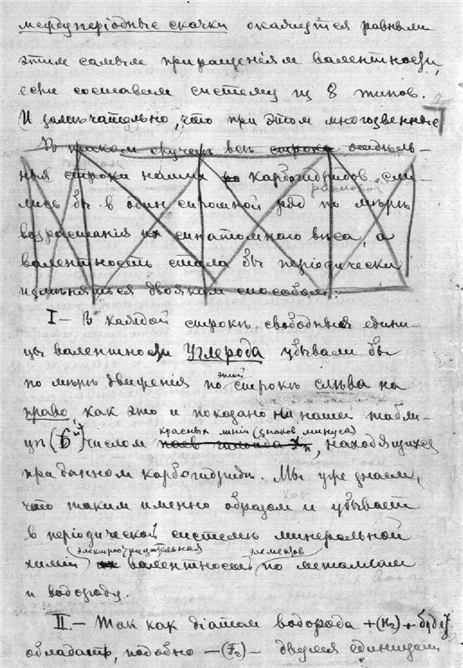 междуперіодные скачки окажутся равными
этим самым приращеніям валентности,
если составим систему из 8 типов.
И замѣчательно, что при этом многозвенные
В таком случаѣ всѣ строки отдѣль-
ныя строки наших карбогидридов сли-
лись бы в один сплошной ряд по мѣрѣ
возрастанія их атомнаго вѣса, а
валентность стала бы періодически
измѣняться двояким способом:
I — В каждой строкѣ свободныя едини-
цы валентности Углерода убывали бы
по мѣрѣ движенія по этой строкѣ слѣва на
право как это и показано на нашей табли-
цѣ (6й) числом красных линій (знаков минуса)
, находящихся
при данном карбогидридѣ. Мы уже знаем,
что таким именно образом и убывает
в періодической системѣ минеральной
химіи (электроотрицательная) валентность элементов по металлам
и водороду.
II — Так как діатом водорода +(H₂)+ будет
обладать, подобно —(F₂)— двумя единицами